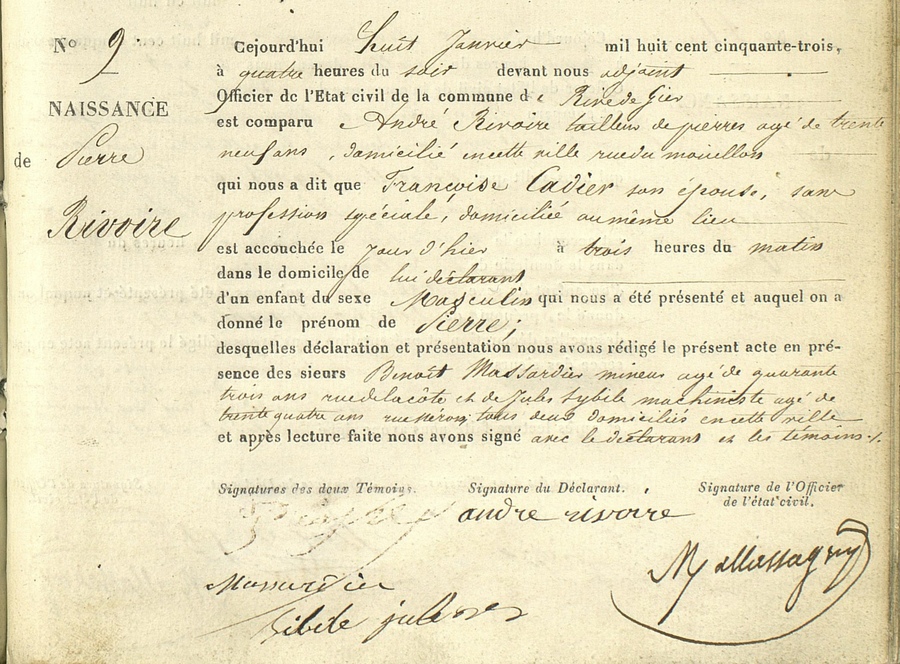 No 9
NAISSANCE
de Pierre
Rivoire
Cejourd'hui huit Janvier mil huit cent cinquante-trois,
à quatre heures du soir devant nous adjoint
Officier de l'Etat civil de la commune de Rive de Gier
est comparu André Rivoire tailleur de pierres agé de trente
neuf ans, domicilié en cette ville rue du mouillon
qui nous a dit que Françoise Cadier son épouse, sans
profession spéciale, domiciliée au même lieu
est accouchée le jour d'hier à trois heures du matin
dans le domicile de lui déclarant
d'un enfant du sexe Masculin qui nous a été présenté et auquel on a
donné le prénom de Pierre;
desquelles déclaration et présentation nous avons rédigé le présent acte en pré-
sence des sieurs Benoît Massardier mineur agé de quarante
trois ans rue de la côte et de Jules Sybile machiniste agé de
trente quatre ans rue tous deux domiciliés en cette ville
et après lecture faite nous avons signé avec le déclarant et les témoins ./.
Signatures des deux Témoins. Signature du Déclarant. Signature de l'Officier
de l'état civil.
andre rivoire
Massardier
Sibile jules